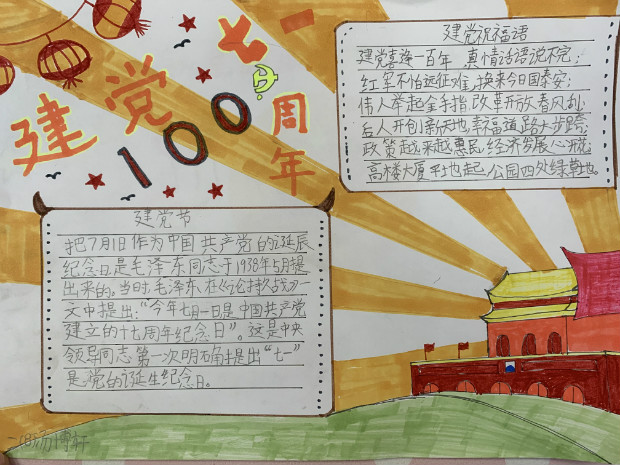 七一
建党100周年
建党祝福语
建党喜逢一百年,真情话语说不完;
红军不怕远征难,换来今日国泰安;
伟人举起金手指,改革开放春风乱;
后人开创新天地,幸福道路大步跨;
政策越来越惠民,经济发展心花
高楼大厦平地起,公园四处绿草地。
建党节
把7月1日作为中国共产党的诞辰
纪念日是毛泽东同志于1938年5月提
出来的。当时,毛泽东在《论持久战》一
文中提出:“今年七月一日是中国共产党
建立的十七周年纪念日”。这是中央
领导同志第一次明确提出“七一”
是党的诞生纪念日。
汤博轩